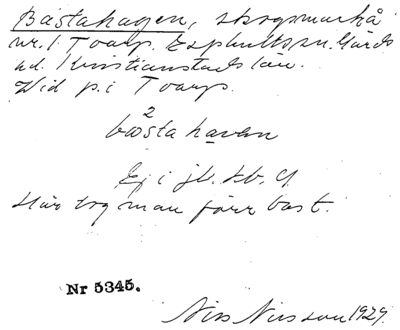 Bastahagen, skogsmark å
nr. 1 Toarp. Esphults sn. Gärds
hd. Kristianstads län.
Vid p. i Toarp.
2
båsta haven
Ej i jb. kb. Gl
Här tog man förr bast.
Nr 5345.
Nils Nilsson 1929.